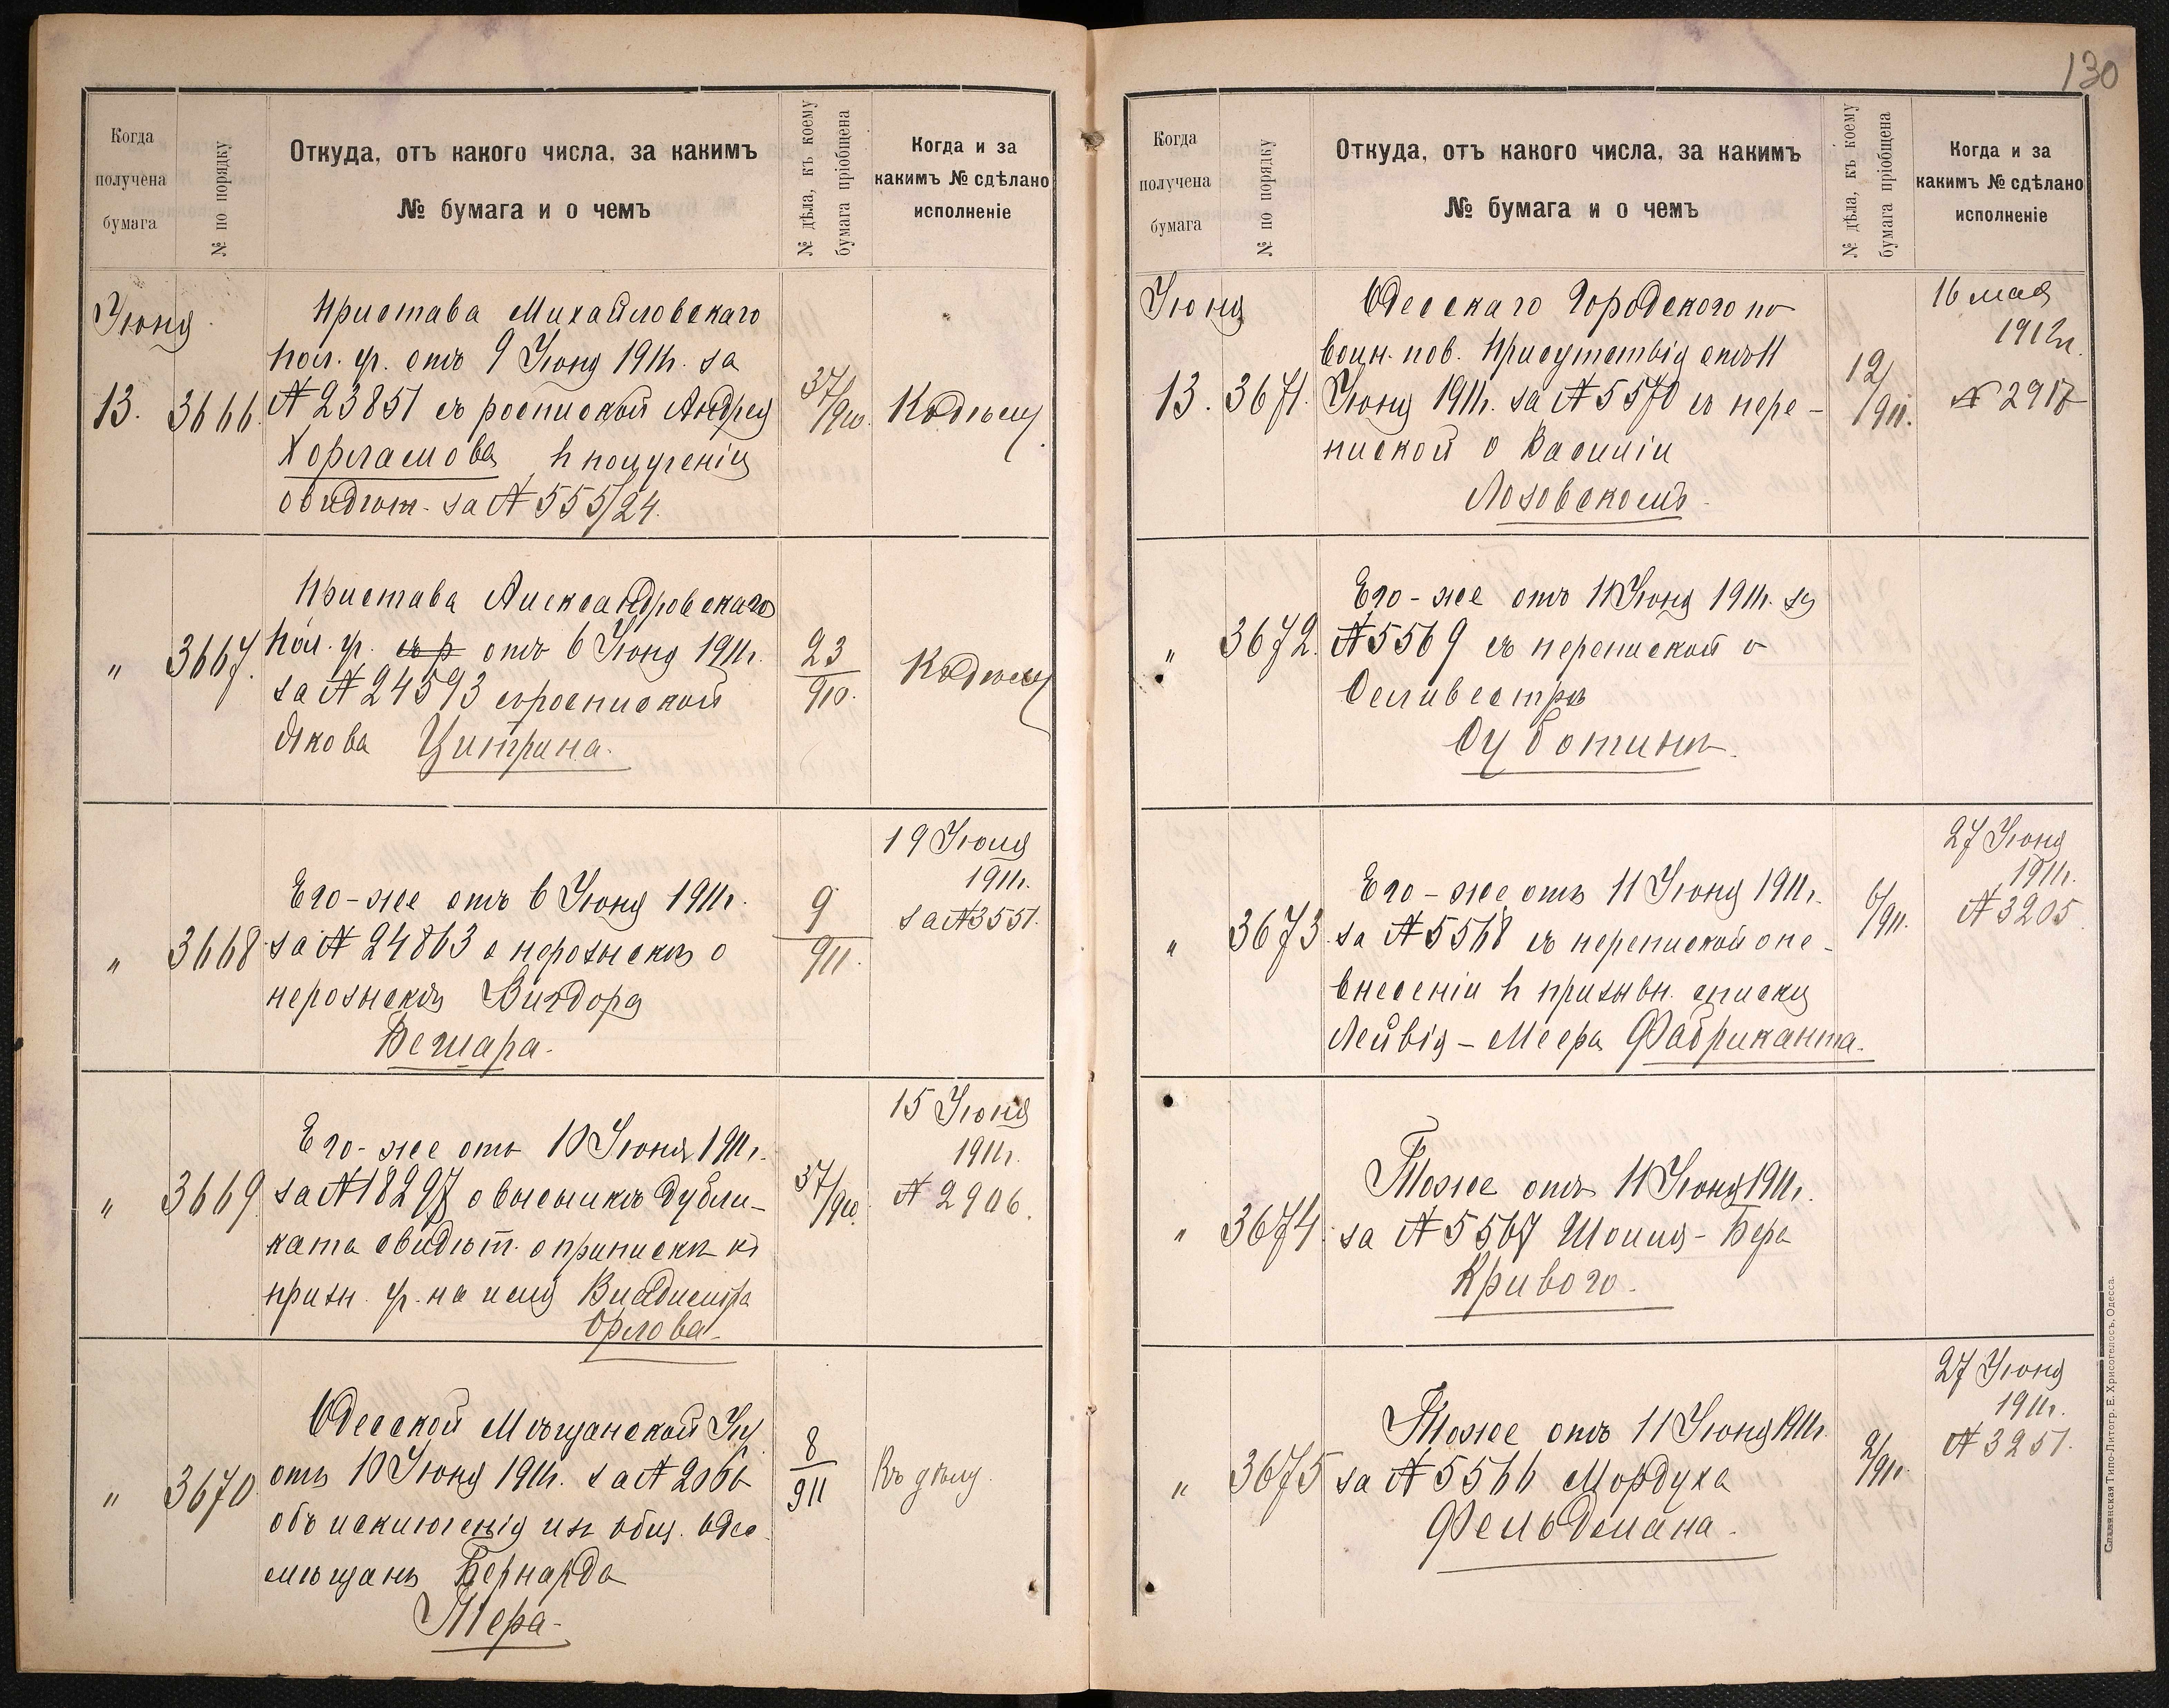 130
Когда
получена
бумага
№ по порядку
Откуда, отъ какого числа, за какимъ
№ бумага и о чемъ
№ дѣла, къ коему
бумага пріобщена
Когда и за
какимъ № сдѣлано
исполненіе
Іюня
13.
3666.
Пристава Михайловскаго
пол. уч. отъ 9 Іюня 1911г. за
№ 23851 съ роспиской Андрея
въ полученіи
свидѣт. за № 555/24.
37/910.
Къ дѣлу
"
3667.
Пристава Александровскаго
пол. уч. съ р отъ 6 Іюня 1911г.
за № 24593 съ роспиской
Якова Цитрина.
23/910.
Къ дѣлу
"
3668
Его-же отъ 6 Іюня 1911г.
за № 24863 о нерозыскѣ о
нерозыскѣ
9/911.
19 Іюля
1911г.
за № 3551.
"
3669.
Его-же отъ 10 Іюня 1911г.
за № 18297 о высылкѣ дубли-
ката свидѣт. о припискѣ къ
приз. уч. на имя Владиміра
Орлова.
37/910.
15 Іюня
1911г.
№ 2906.
"
3670
Одесской Мѣщанской Уп.
отъ 10 Іюня 1911г. за № 2066
объ исключеніи изъ общ. Одес.
мѣщанъ Бернарда
8/911
Къ дѣлу.
Когда
получена
бумага
№ по порядку
Откуда, отъ какого числа, за какимъ
№ бумага и о чемъ
№ дѣла, къ коему
бумага пріобщена
Когда и за
какимъ № сдѣлано
исполненіе
Іюня
13.
3671.
Одесскаго Городского по
воин. пов. Присутствія отъ 11
Іюня 1911г. за № 5570 съ пере-
пиской о Василіи
Лозовскомъ.
12/911.
16 мая
1912г.
№ 2917
"
3672.
Его-же отъ 11 Іюня 1911г. за
№ 5569 съ перепиской о
Селивестрѣ
Суботинѣ.
"
3673.
Его-же отъ 11 Іюня 1911г.
за № 5568 съ перепиской о не-
внесеніи въ призывн. списки
Лейвія-Меера Фабриканта.
6/911.
27 Іюня
1911г.
№ 3205
"
3674.
Тоже отъ 11 Іюня 1911г.
за № 5567 Шоила-Бера
Кривого.
"
3675
Тоже отъ 11 Іюня 1911г.
за № 5566 Мордуха
Фельдмана.
2/911.
27 Іюня
1911г.
№ 3251.
Славянская Типо-Литогр. Е. Хрисогелосъ, Одесса.